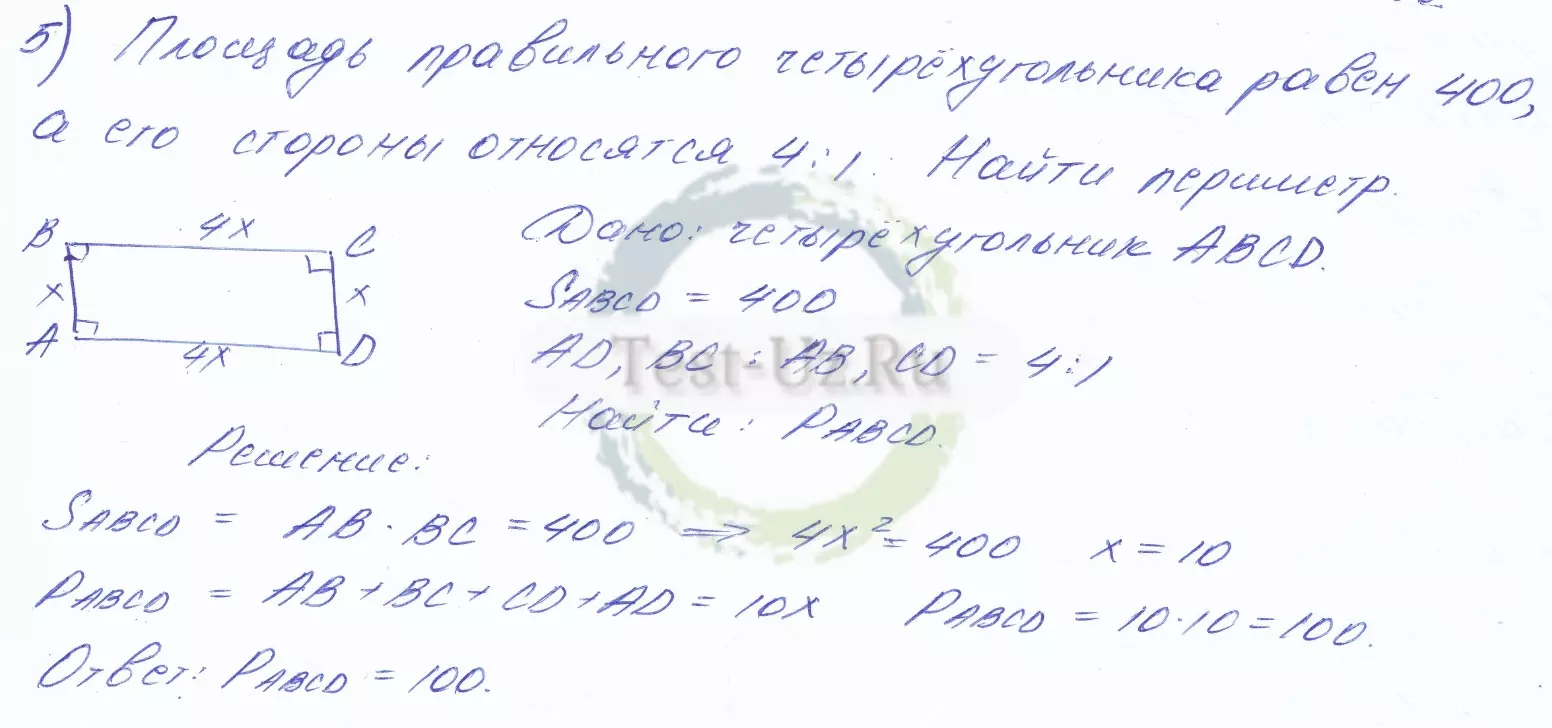 5) Площадь правильного четырёхугольника равен 400,
а его стороны относятся 4:1. Найти периметр.
B 4x C
x x
A 4x D
Дано: четырёхугольник ABCD.
SABCD = 400
AD, BC : AB, CD = 4:1
Найти: PABCD.
Test-Uz.Ru
Решение:
SABCD = AB · BC = 400 => 4x² = 400 x = 10
PABCD = AB + BC + CD + AD = 10x PABCD = 10·10 = 100.
Ответ: PABCD = 100.